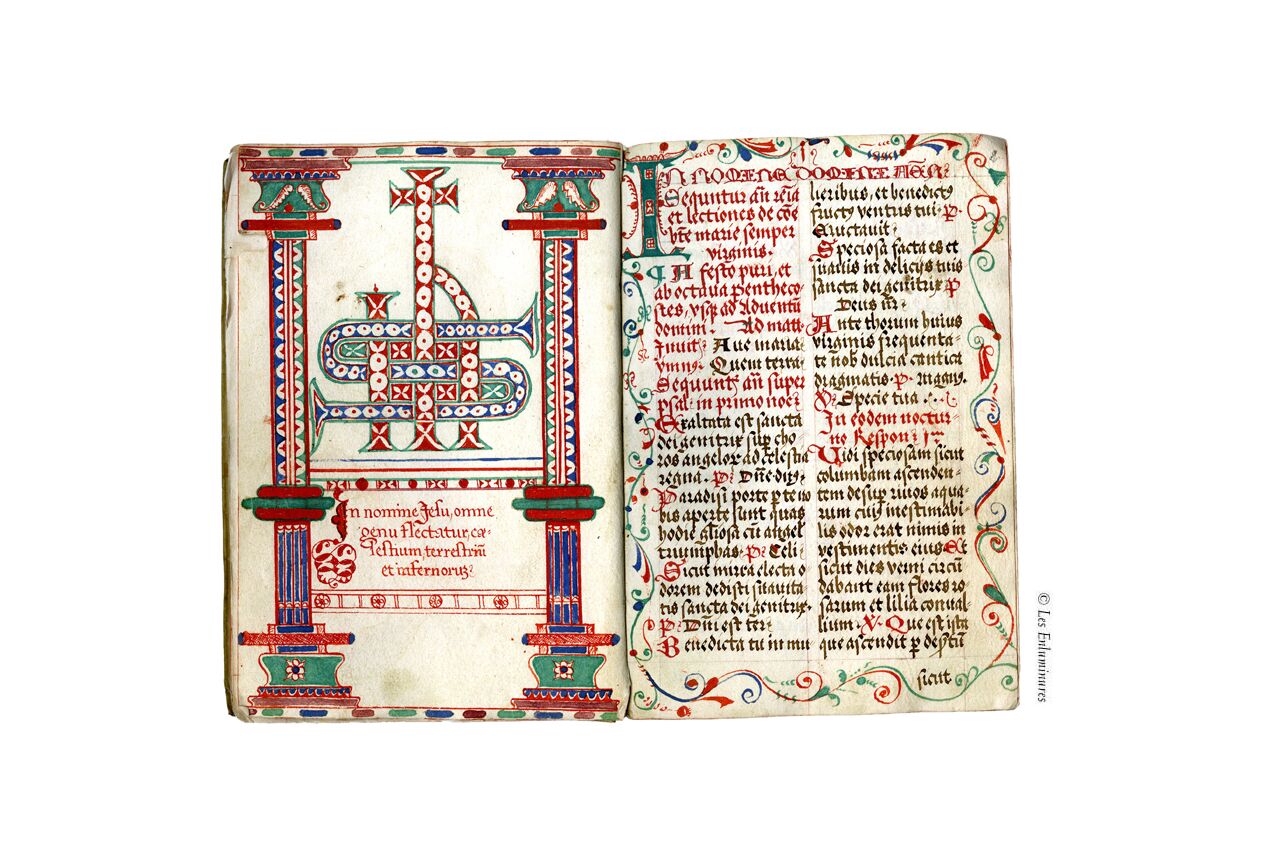 In nomine Jesu, omne
genu flectatur, cæ-
lestium, terrestriũ
et infernorũ
IN NOMINE DOMINE AMEN
Sequuntur añ reia
et lectiones de cõe
bte marie semper
virginis.
A festo puri, et
ab octava penthecos-
tes, usq; ad Adventũ
domini. Ad matt
Invit. Ave maria
ymnꝰ. Quem terra
Sequunt añ super
psal: in primo noct
Exaltata est sancta
dei genitrix sup cho
ros angelorꝝ ad celestia
regna. p. Dñe dñs.
Paradisi porte p te no
bis aperte sunt quas
hodie gliosa cũ angelꝭ
triumphas. p. Celi
Sicut mirra electa o
dorem dedisti suavita
tis sancta dei genitrix
p. Dñi est ter.
Benedicta tu in mu
lieribus, et benedictꝰ
fructꝰ ventris tui. p.
Eructavit
Speciosa facta es et
suavis in delicijs tuis
sancta dei genitrix p
Deus nr̃
Ante thorum huius
virginis frequenta-
te nob dulcia cantica
dragmatis. p. magnꝰ.
V. Specie tua
In eodem noctur-
no Respon
Vidi speciosam sicut
columbam ascenden-
tem desup rivos aqua-
rum cuiꝰ inestimabi-
lis odor erat nimis in
vestimentis eius. Et
sicut dies verni circũ
dabant eam flores ro
sarum et lilia conval
lium. V. Que est ista
que ascendit p desertũ
sicut
© Les Enluminures